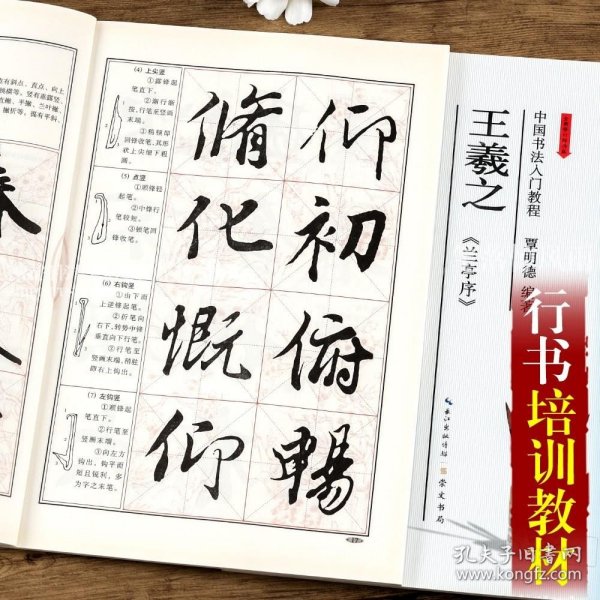 直有斜点、直点、向上
竖有垂露竖
直撇、平撇、兰叶撇
(4) 上尖竖
①露锋起
笔直下。
②渐行渐
按,行笔至竖画
末端。
③稍顿即
回锋收笔,其形
状上尖细下粗
圆。
(5) 点竖
①顺锋轻
起笔。
②中锋行
笔较短。
③顿笔回
锋收笔。
(6) 右钩竖
①由下而
上逆锋起笔。
②折笔向
右下,转势中锋
垂直向下行笔。
③行笔至
竖画末端,稍驻
即右上钩出。
(7) 左钩竖
①顺锋起
笔直下。
②行笔至
竖画末端。
③向左方
钩出,钩平而
短且锐利,多
为字之末笔。
脩 仰
化 初
慨 俯
仰 暢
17
中国书法入门教程
覃明德 编著
王羲之
《兰亭序》
长江出版传媒
崇文书局
行书培训教材
孔夫子旧书网
www.kongfz.com